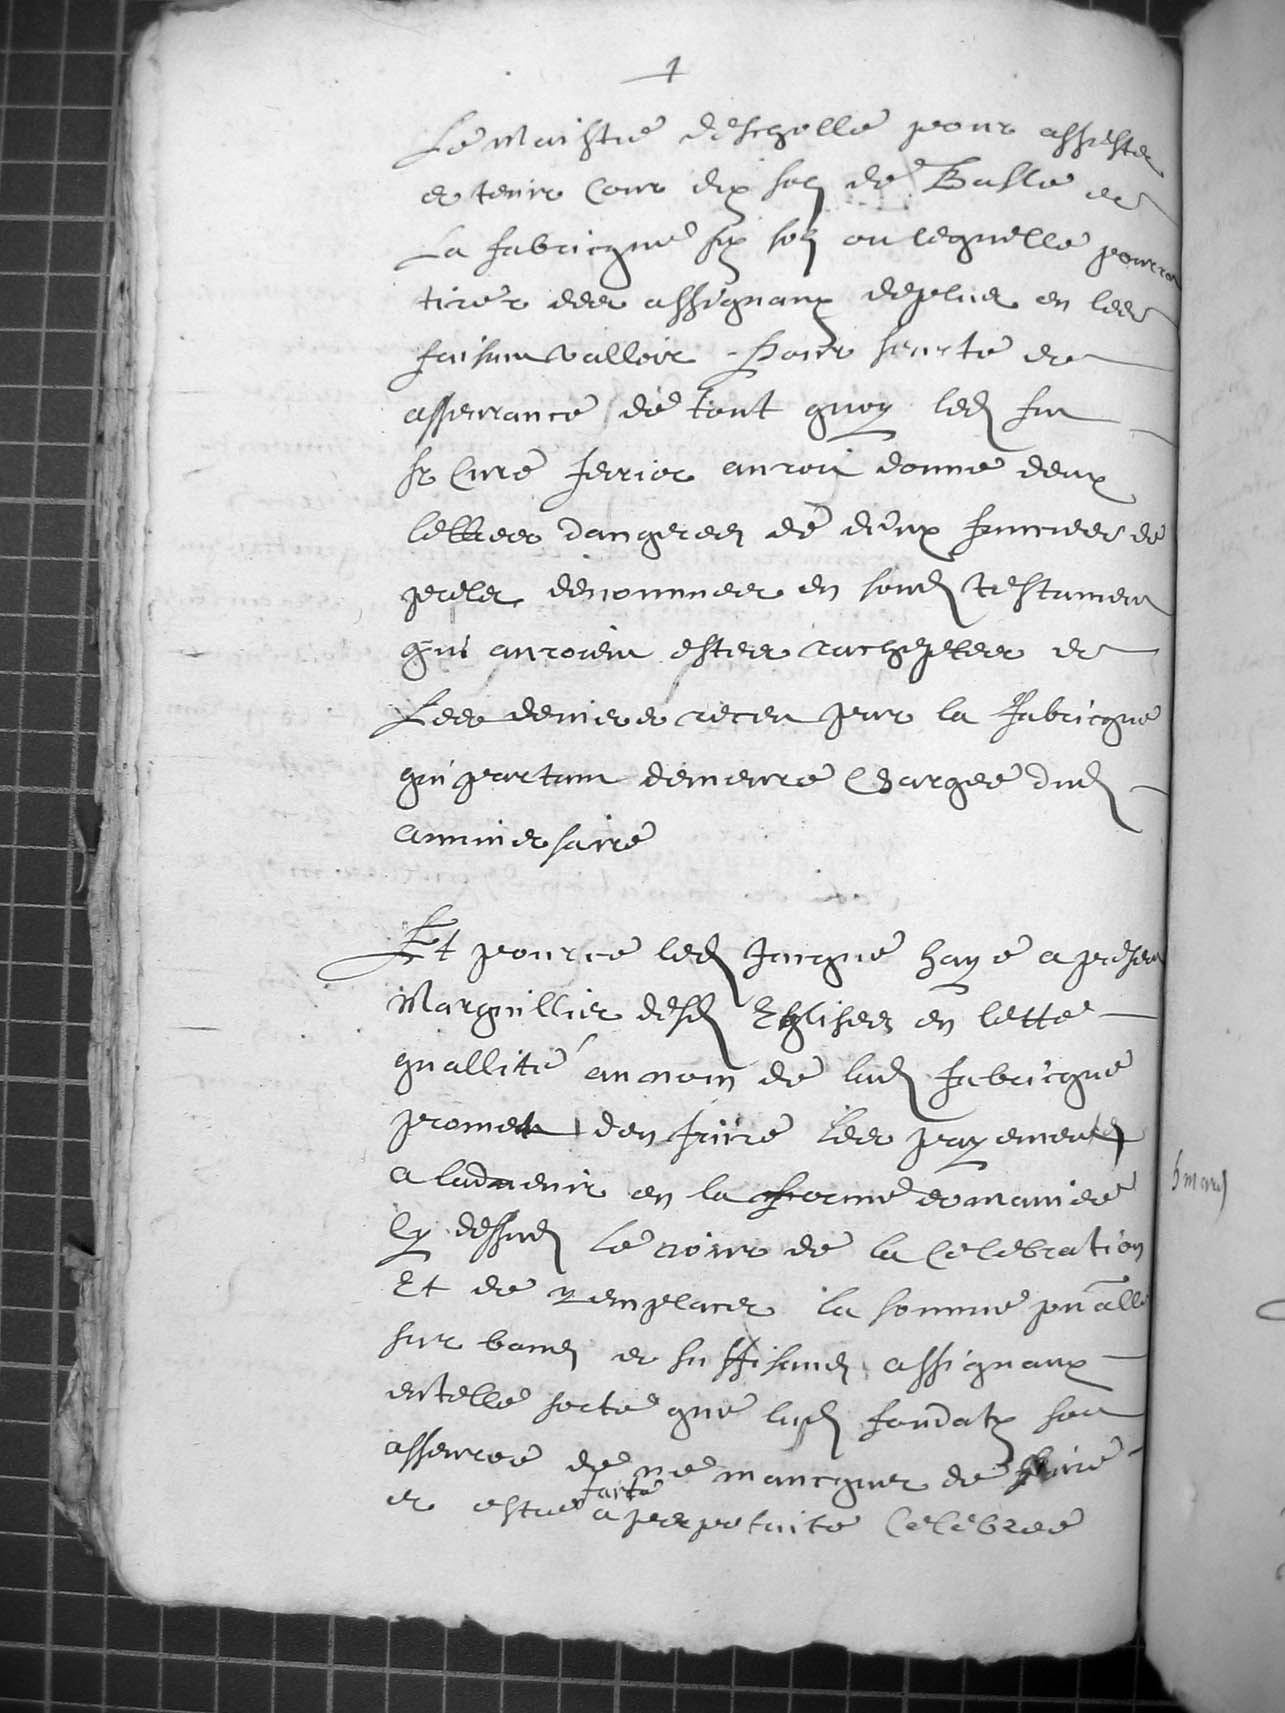 1
Le Maistre deschelle pour assister
et tenir Cour dix solz de Basle et
La fabricque six solz ou lequelle pourra
tirer des assignaux deplus en les
faisant valloir. Pour seurte et
asseurance de tout quoy led fut
Sr Cure ferrier auroit donne deux
lettres dangerez de deux sommes de
denommees en sond testament
qui auroient estees rachaptees et
Les deniers receu par la fabricque
qui partant demeure Chargee dud
anniversaire
Et pource led Jacque haye a present
Marguillier desd Eglises en cette
quallite au nom de lad fabricque
promet den faire les payements
a ladvenir en la forme et maniere
Cy dessud le jour de la Celebration
Et de remplacer la somme pnãlle
sur bons et suffisand assignaux
entelle sorte que lesd fondatz soit
asseuree de ne mancquer de faire
et estre faite a perpetuite Celebree